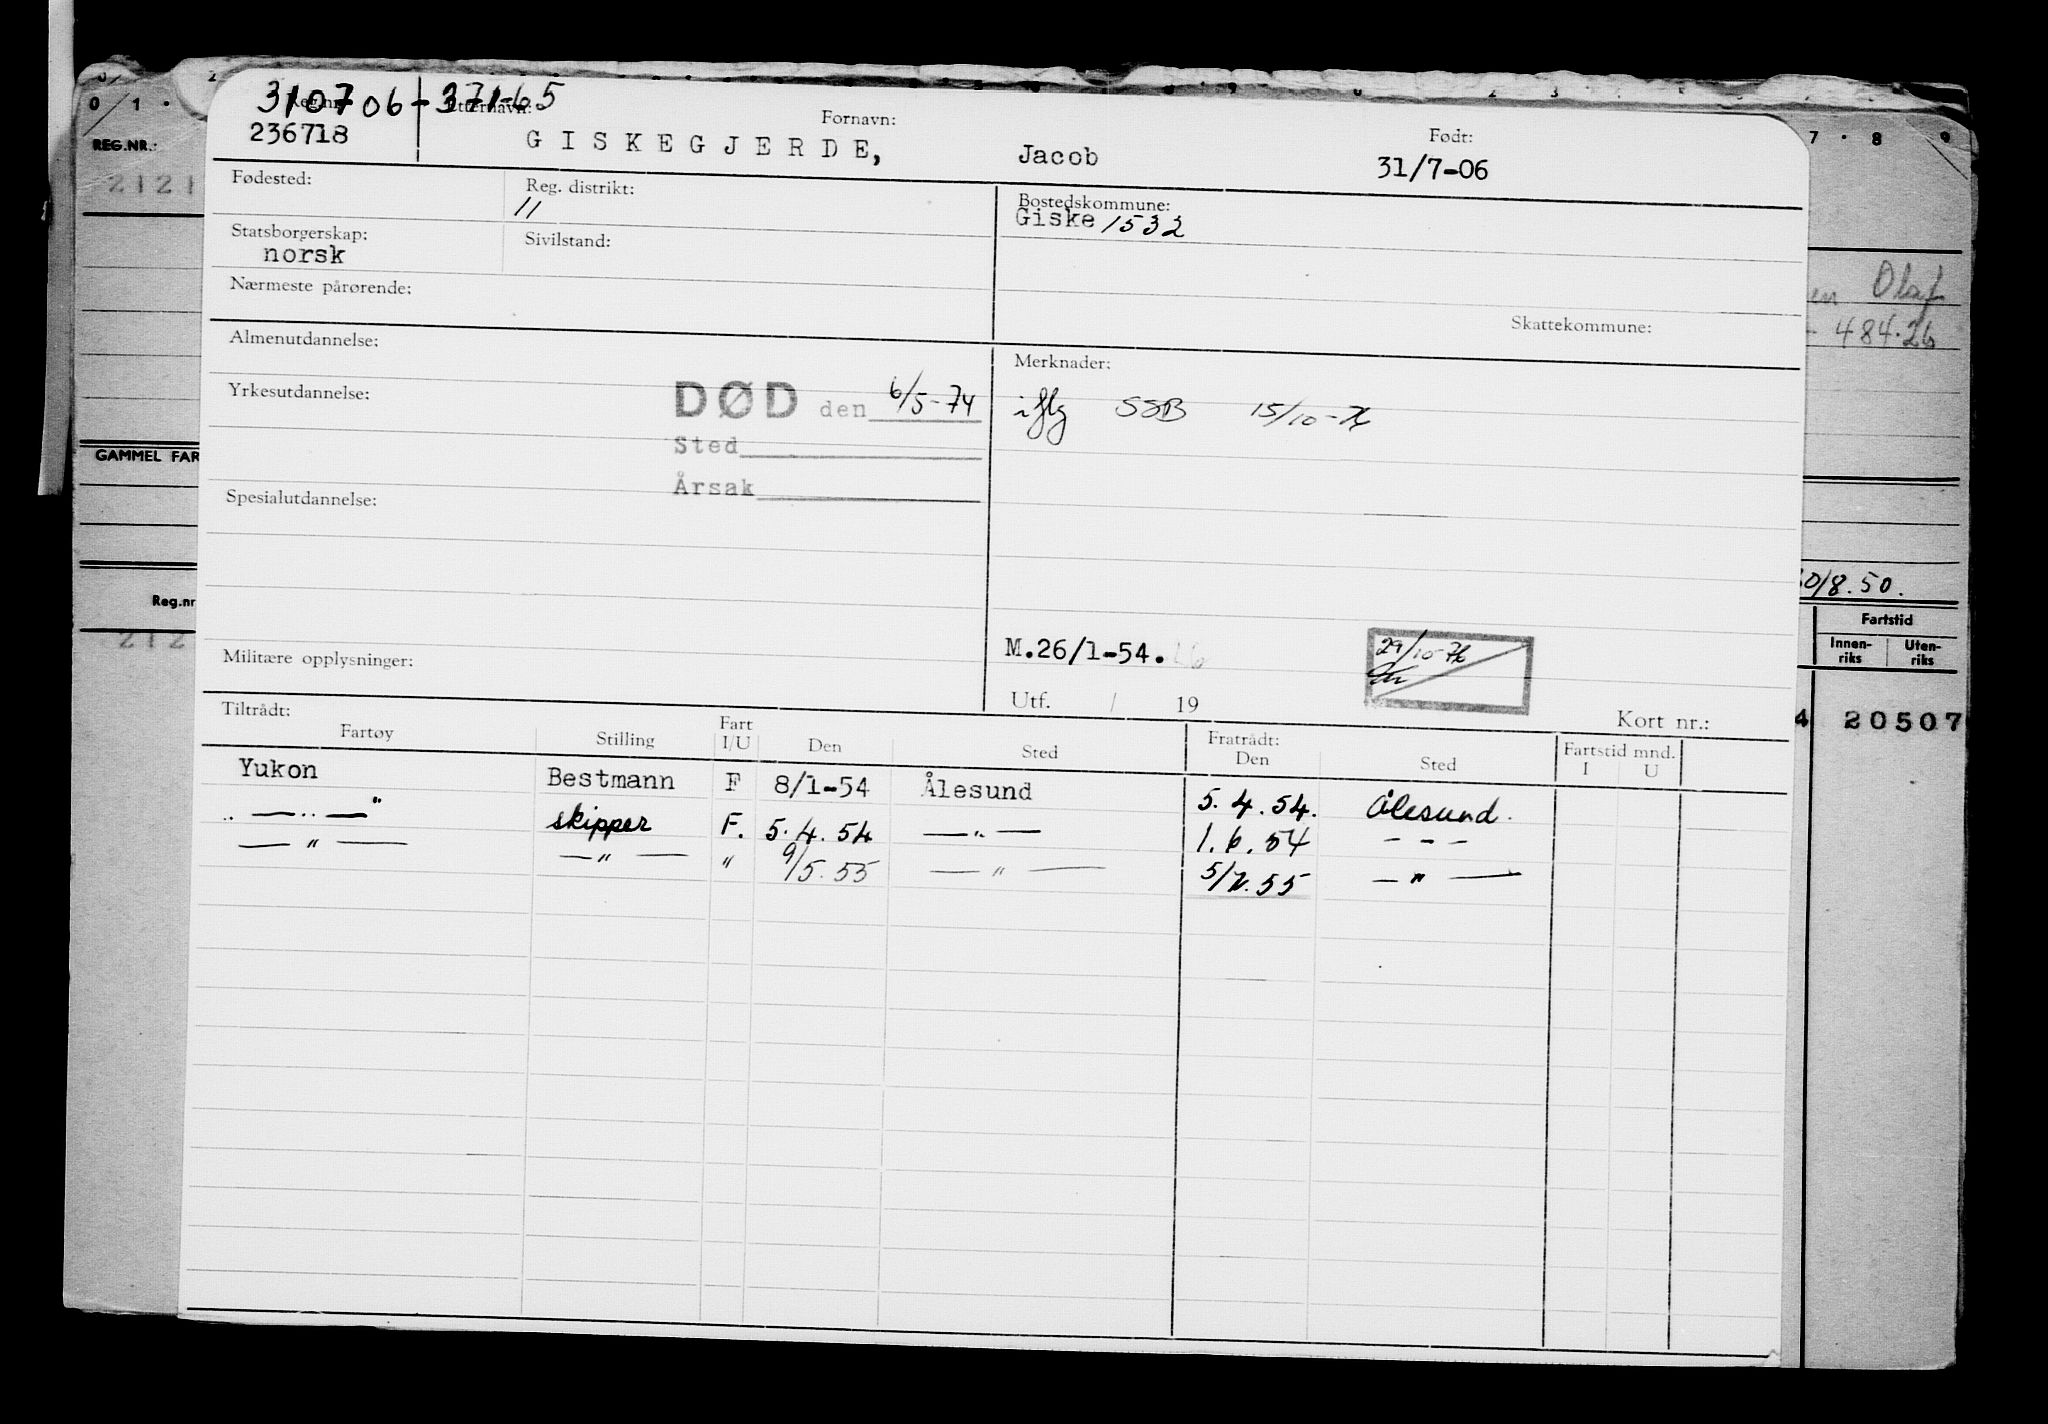 310706-371-65
Reg.nr. Etternavn: Fornavn: Født:
236718 GISKEGJERDE, Jacob 31/7-06
Fødested: Reg. distrikt: 11 Bostedskommune:
Giske 1532
Statsborgerskap: Sivilstand:
norsk
Nærmeste pårørende:
Skattekommune:
Almenutdannelse: Merknader:
Yrkesutdannelse: DØD den 6/5-74 iflg SSB 15/10-76
Sted
Årsak
Spesialutdannelse:
M.26/1-54. 29/10-76
Militære opplysninger:
Utf. / 19 Kort nr.:
Tiltrådt: Fratrådt:
Fartøy Stilling Fart I/U Den Sted Den Sted Fartstid mnd. I U
Yukon Bestmann F 8/1-54 Ålesund 5.4.54. Ålesund.
" skipper F. 5.4.54 —"— 1.6.54 ---
—"— —"— " 9/5.55 —"— 5/7.55 —"—
0 1 .
REG.NR.:
2121
GAMMEL FAR
Reg.nr
212
7 . 8 9
en Olaf
- 484.26
30/8.50.
Fartstid
Innen-riks Uten-riks
4 20507